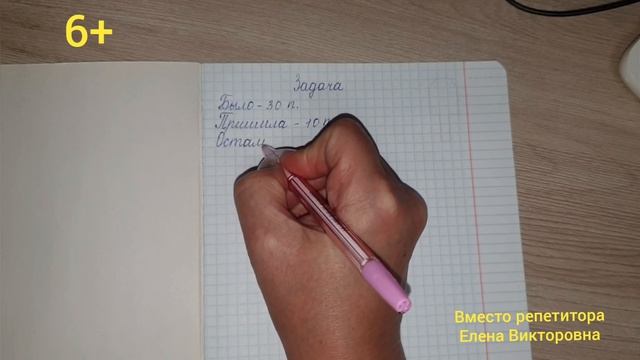 6+
Задача
Было - 30 п.
Пришила - 10 п
Остал
Вместо репетитора
Елена Викторовна